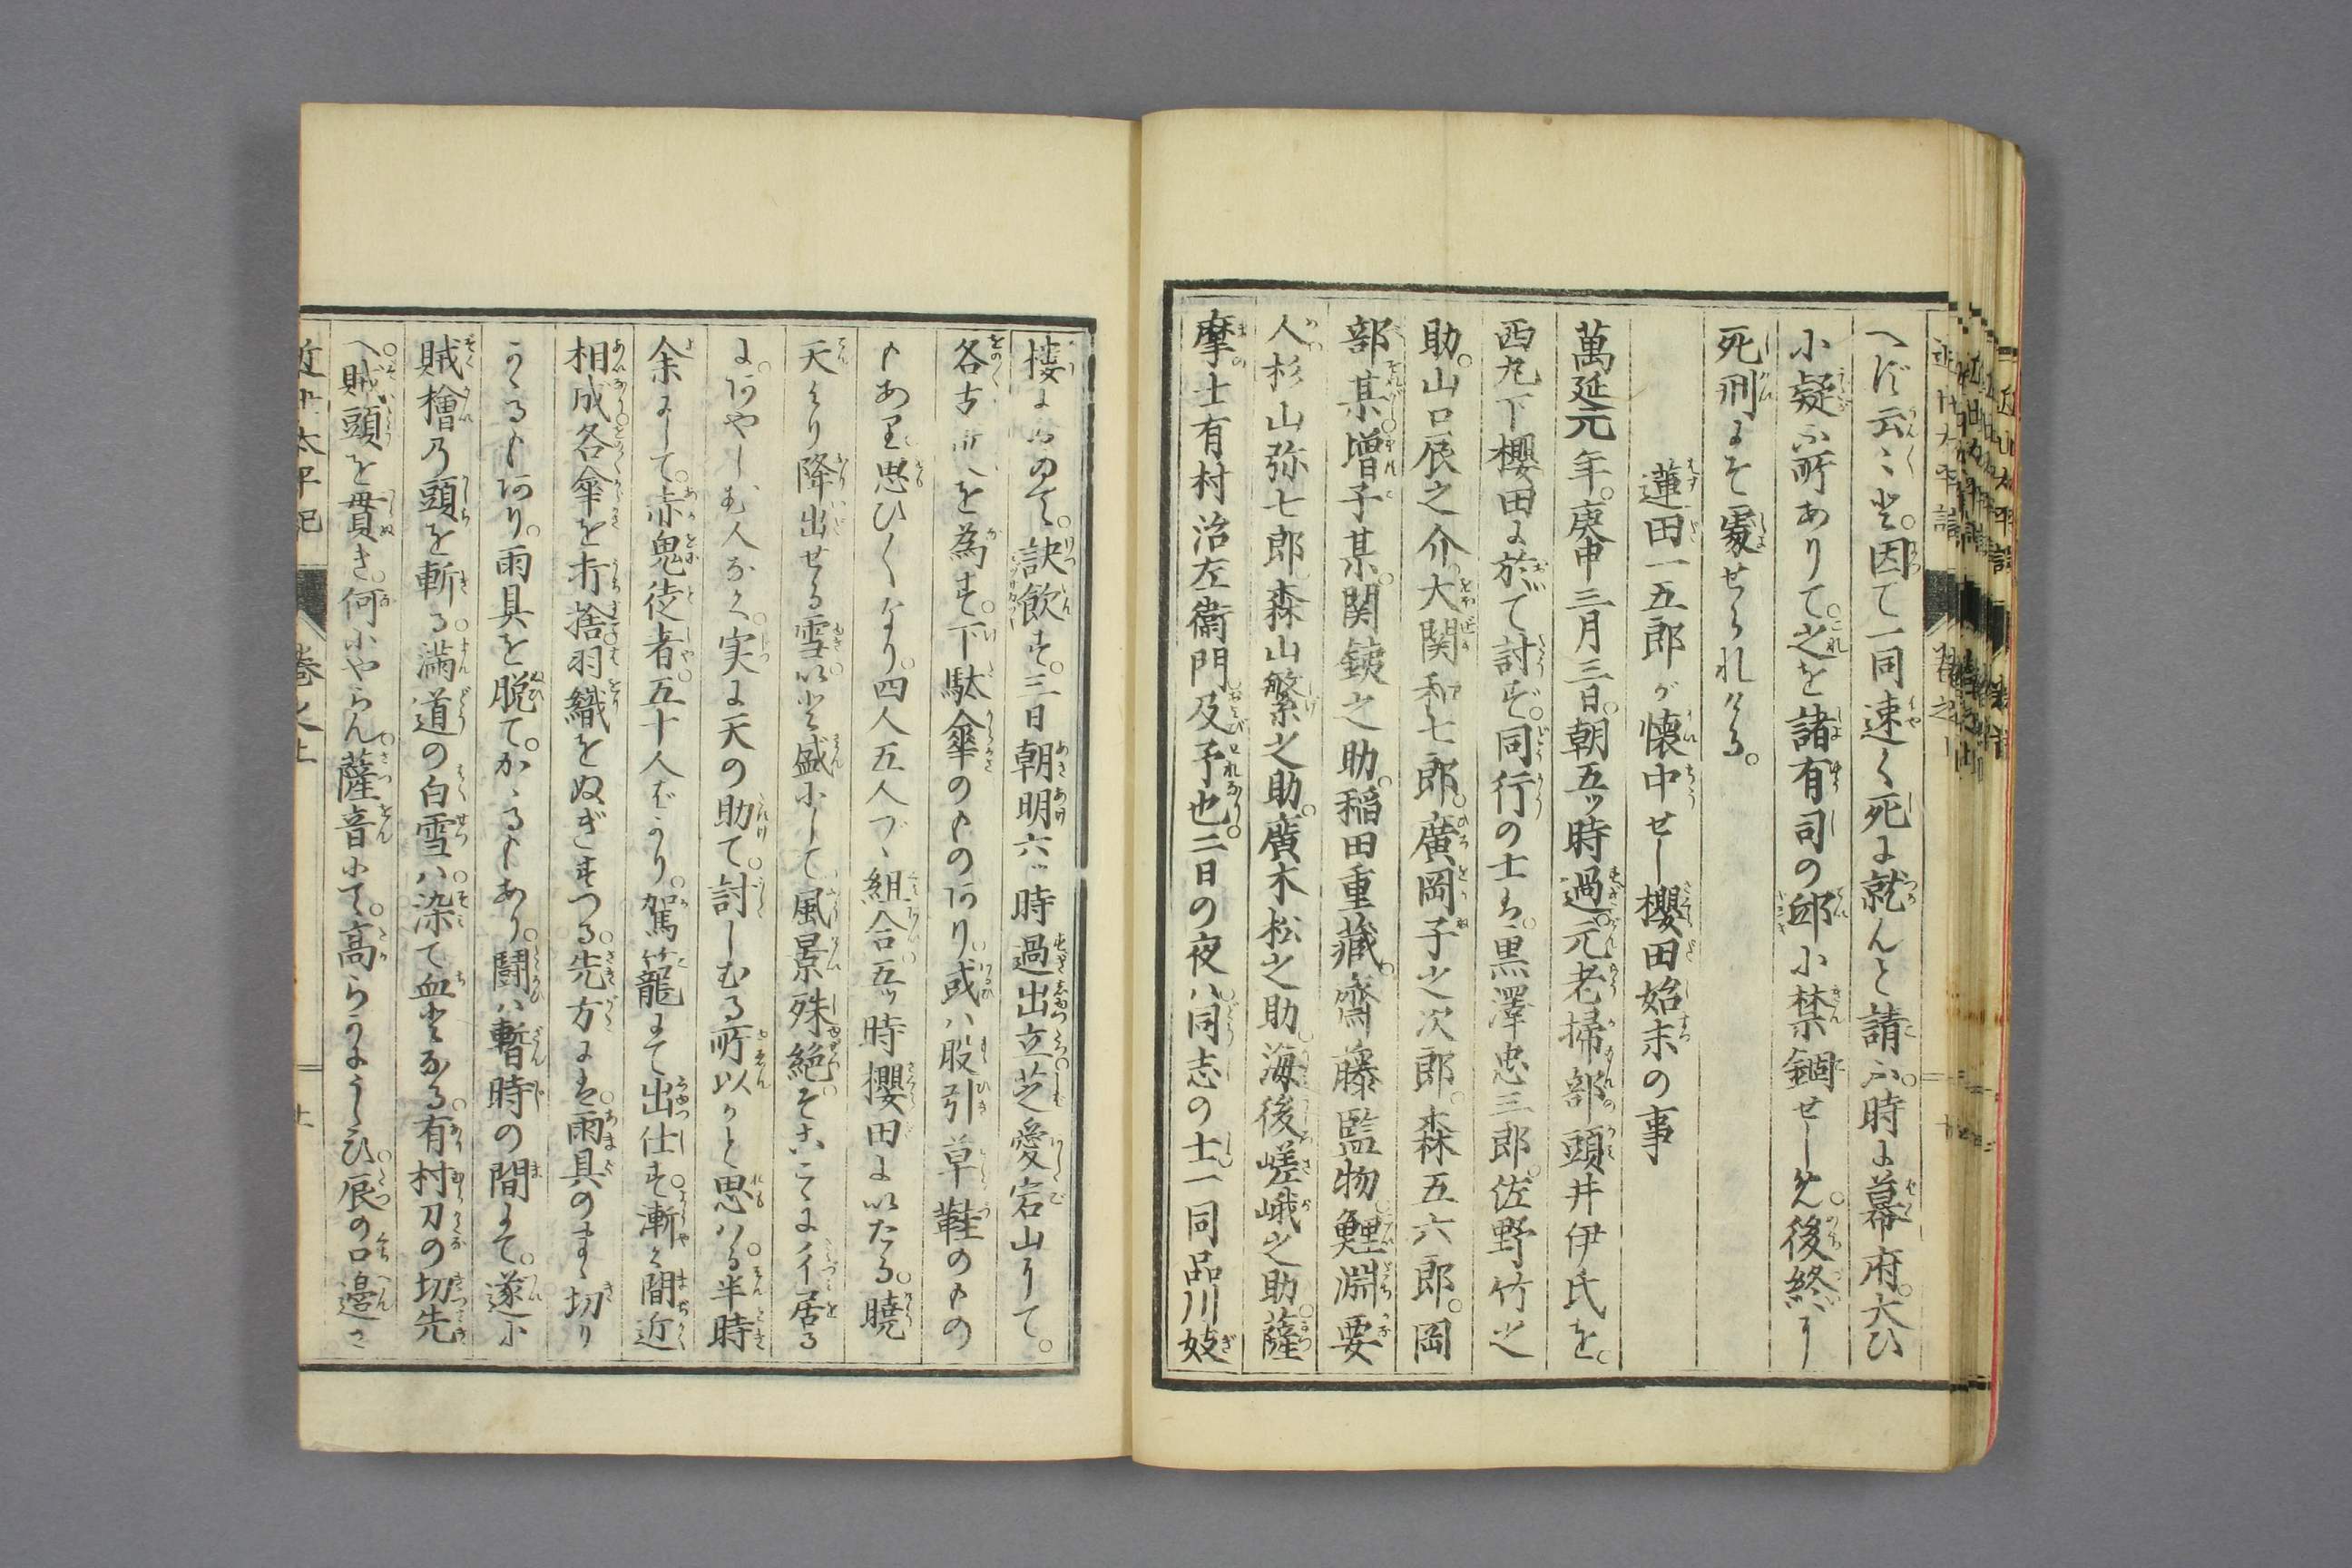 へバ云々と。因て一同速く死に就んと請ふ。時に幕府。大ひ
に疑ふ所ありて。之を諸有司の邸に禁錮せしめ。後終に
死刑にそ處せられける。
蓮田一五郎が懐中せし櫻田始末の事
萬延元年。庚申三月三日。朝五ツ時過。元老掃部頭井伊氏を。
西丸下櫻田に於て討ず。同行の士ハ。黒澤忠三郎。佐野竹之
助。山口辰之介。大関和七郎。廣岡子之次郎。森五六郎。岡
部某。増子某。関鉄之助。稲田重藏。齋藤監物。鯉淵要
人。杉山弥七郎。森山繁之助。廣木松之助。海後嵯峨之助。薩
摩士有村治左衛門。及予也。三日の夜ハ。同志の士一同品川妓
楼にのて。訣飲す。三日朝明六ツ時過出立。芝愛宕山にて。
各を為す。下駄傘のものあり。或ハ股引草鞋のもの
もあり。思ひ〳〵なり。四人五人づゝ組合。五ツ時櫻田にいたる。曉
天より降出せる雪。いと盛にして風景殊絶。そこここに彳居る
に。あやしむ人なく。実に天の助て。討しむる所以かと思ハる。半時
余にして。赤鬼徒者。五十人ばかり。駕籠にて出仕す。漸々間近
相成。各傘を打捨。羽織をぬぎすつる。先方にも。雨具のまゝ切り
かゝるもあり。雨具を脱て。かゝるもあり。闘ハ暫時の間にて。遂に
賊檜の頭を斬る。満道の白雪ハ。染て血となる。有村刀の切先
へ。賊頭を貫き。何にやらん。薩音にて。高らかにうたひ。辰の口邊さ
近世太平記 巻之上